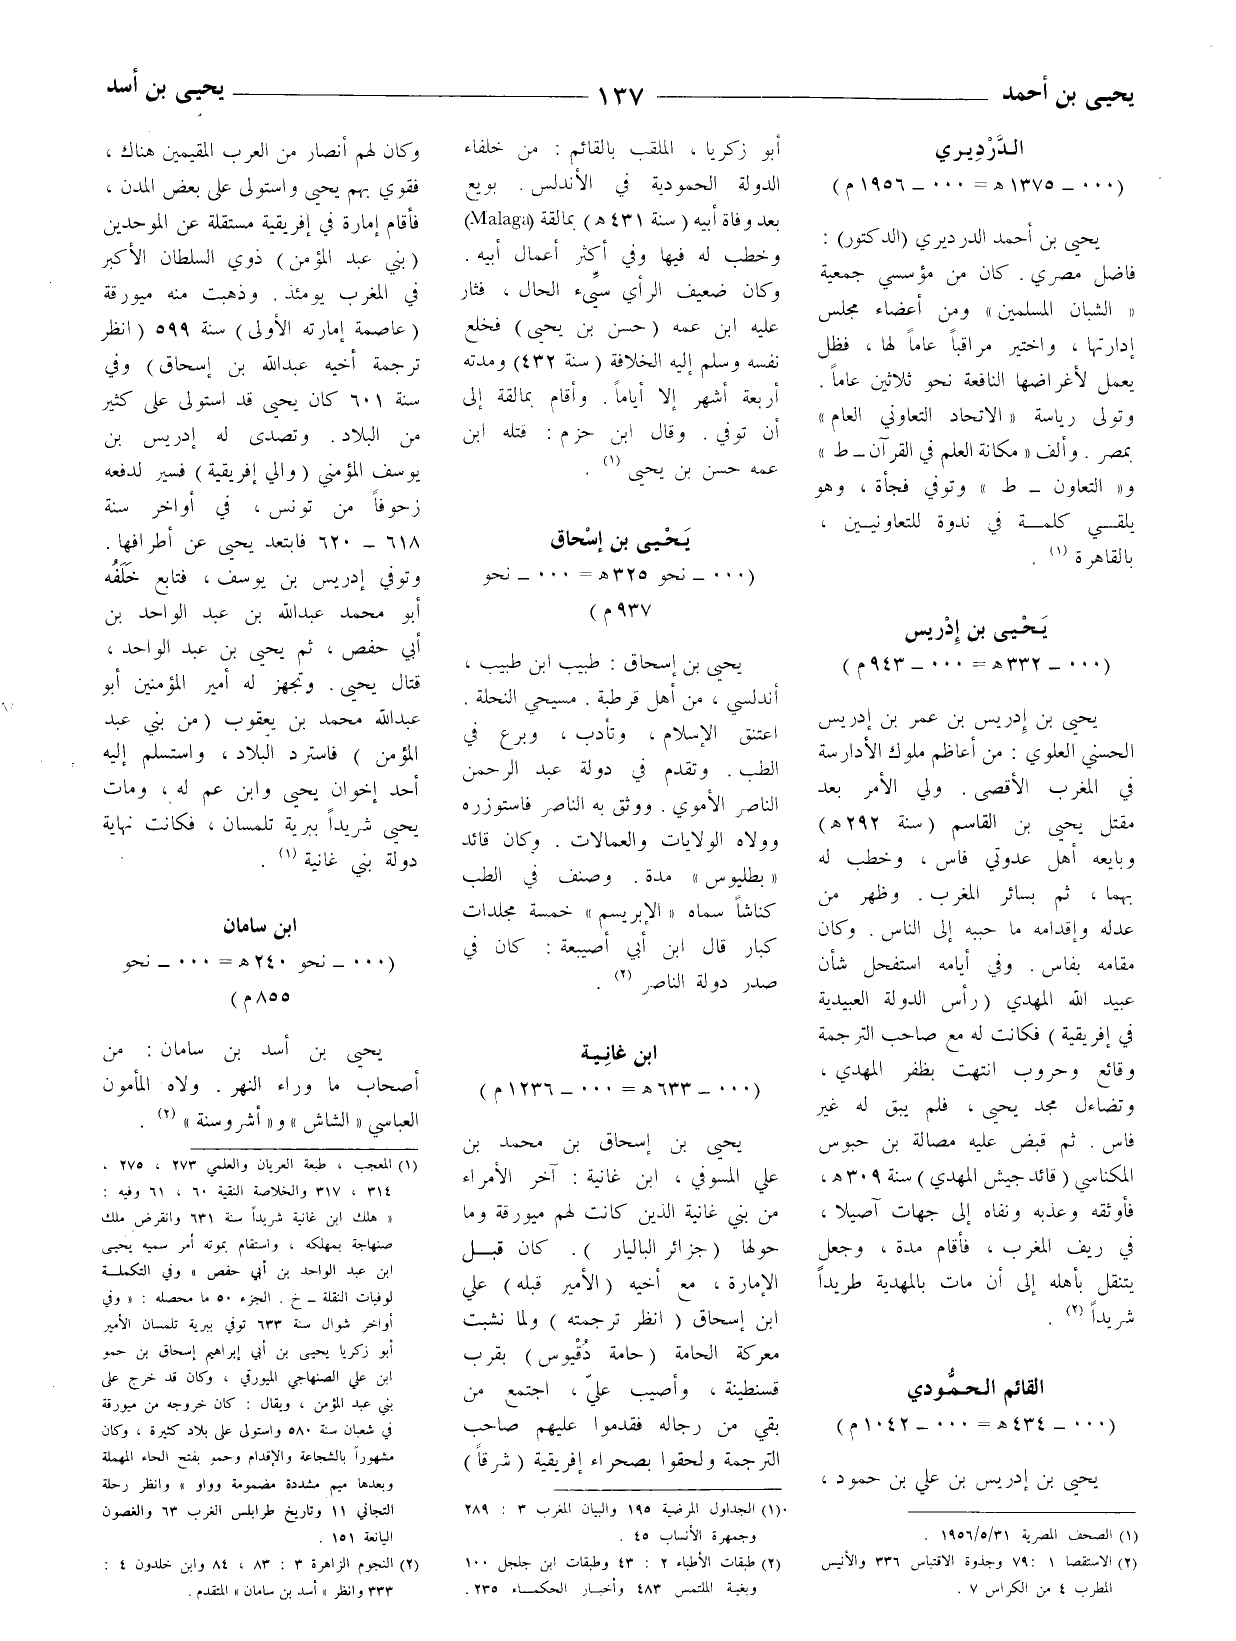 يحيى بن أحمد ١٣٧ يحيى بن أسد
الدَّرْدِيري
(٠٠٠ ــ ١٣٧٥ هـ = ٠٠٠ ــ ١٩٥٦ م)
يحيى بن أحمد الدرديري (الدكتور) :
فاضل مصري . كان من مؤسسي جمعية
« الشبان المسلمين » ومن أعضاء مجلس
إدارتها ، واختير مراقباً عاماً لها ، فظل
يعمل لأغراضها النافعة نحو ثلاثين عاماً .
وتولى رياسة « الاتحاد التعاوني العام »
بمصر . وألف « مكانة العلم في القرآن ــ ط »
و« التعاون ــ ط » وتوفي فجأة ، وهو
يلقـي كلمـة في ندوة للتعاونيـين ،
بالقاهرة (١) .
يَحْيى بن إدْريس
(٠٠٠ ــ ٣٣٢هـ = ٠٠٠ ــ ٩٤٣م)
يحيى بن إدريس بن عمر بن إدريس
الحسني العلوي : من أعاظم ملوك الأدارسة
في المغرب الأقصى . ولي الأمر بعد
مقتل يحيى بن القاسم (سنة ٢٩٢ هـ)
وبايعه أهل عدوتي فاس ، وخطب له
بهما ، ثم بسائر المغرب . وظهر من
عدله وإقدامه ما حببه إلى الناس . وكان
مقامه بفاس . وفي أيامه استفحل شأن
عبيد الله المهدي (رأس الدولة العبيدية
في إفريقية ) فكانت له مع صاحب الترجمة
وقائع وحروب انتهت بظفر المهدي ،
وتضاءل مجد يحيى ، فلم يبق له غير
فاس . ثم قبض عليه مصالة بن حبوس
المكناسي ( قائد جيش المهدي ) سنة ٣٠٩ هـ ،
فأوثقه وعذبه ونفاه إلى جهات آصيلا ،
في ريف المغرب ، فأقام مدة ، وجعل
يتنقل بأهله إلى أن مات بالمهدية طريداً
شريداً (٢) .
القائم الحمُّودي
(٠٠٠ ــ ٤٣٤ هـ = ٠٠٠ ــ ١٠٤٢ م)
يحيى بن إدريس بن علي بن حمود ،
(١) الصحف المصرية ١٩٥٦/٥/٣١ .
(٢) الاستقصا ١ : ٧٩ وجذوة الاقتباس ٣٣٦ والأنيس
المطرب ٤ من الكراس ٧ .
أبو زكريا ، الملقب بالقائم : من خلفاء
الدولة الحمودية في الأندلس . بويع
بعد وفاة أبيه ( سنة ٤٣١ هـ ) بمالقة (Malaga)
وخطب له فيها وفي أكثر أعمال أبيه .
وكان ضعيف الرأي سيِّىء الحال ، فثار
عليه ابن عمه ( حسن بن يحيى ) فخلع
نفسه وسلم إليه الخلافة ( سنة ٤٣٢) ومدته
أربعة أشهر إلا أياماً . وأقام بمالقة إلى
أن توفي . وقال ابن حزم : قتله ابن
عمه حسن بن يحيى (١) .
يَحْيى بن إسْحاق
(٠٠٠ ــ نحو ٣٢٥هـ = ٠٠٠ ــ نحو
٩٣٧م )
يحيى بن إسحاق : طبيب ابن طبيب ،
أندلسي ، من أهل قرطبة . مسيحي النحلة .
اعتنق الإسلام ، وتأدب ، وبرع في
الطب . وتقدم في دولة عبد الرحمن
الناصر الأموي . ووثق به الناصر فاستوزره
وولاه الولايات والعمالات . وكان قائد
« بطليوس » مدة . وصنف في الطب
كناشاً سماه « الإبريسم » خمسة مجلدات
كبار قال ابن أبي أصيبعة : كان في
صدر دولة الناصر (٢) .
ابن غانِية
(٠٠٠ ــ ٦٣٣هـ = ٠٠٠ ــ ١٢٣٦م )
يحيى بن إسحاق بن محمد بن
علي المسوفي ، ابن غانية : آخر الأمراء
من بني غانية الذين كانت لهم ميورقة وما
حولها (جزائر الباليار ) . كان قبـل
الإمارة ، مع أخيه (الأمير قبله) علي
ابن إسحاق ( انظر ترجمته ) ولما نشبت
معركة الحامة (حامة دُقْيوس ) بقرب
قسنطينة ، وأصيب عليّ ، اجتمع من
بقي من رجاله فقدموا عليهم صاحب
الترجمة ولحقوا بصحراء إفريقية ( شرقاً )
(١) الجداول المرضية ١٩٥ والبيان المغرب ٣ : ٢٨٩
وجمهرة الأنساب ٤٥ .
(٢) طبقات الأطباء ٢ : ٤٣ وطبقات ابن جلجل ١٠٠
وبغية الملتمس ٤٨٣ وأخبار الحكماء ٢٣٥.
وكان لهم أنصار من العرب المقيمين هناك ،
فقوي بهم يحيى واستولى على بعض المدن ،
فأقام إمارة في إفريقية مستقلة عن الموحدين
( بني عبد المؤمن ) ذوي السلطان الأكبر
في المغرب يومئذ . وذهبت منه ميورقة
( عاصمة إمارته الأولى ) سنة ٥٩٩ ( انظر
ترجمة أخيه عبدالله بن إسحاق ) وفي
سنة ٦٠١ كان يحيى قد استولى على كثير
من البلاد . وتصدى له إدريس بن
يوسف المؤمني ( والي إفريقية ) فسير لدفعه
زحوفاً من تونس ، في أواخر سنة
٦١٨ ــ ٦٢٠ فابتعد يحيى عن أطرافها .
وتوفي إدريس بن يوسف ، فتابع خَلَفُه
أبو محمد عبدالله بن عبد الواحد بن
أبي حفص ، ثم يحيى بن عبد الواحد ،
قتال يحيى . وتجهز له أمير المؤمنين أبو
عبدالله محمد بن يعقوب (من بني عبد
المؤمن ) فاسترد البلاد ، واستسلم إليه
أحد إخوان يحيى وابن عم له ، ومات
يحيى شريداً ببرية تلمسان ، فكانت نهاية
دولة بني غانية (١) .
ابن سامان
(٠٠٠ ــ نحو ٢٤٠ هـ = ٠٠٠ ــ نحو
٨٥٥م )
يحيى بن أسد بن سامان : من
أصحاب ما وراء النهر . ولاه المأمون
العباسي « الشاش » و« أشروسنة » (٢) .
(١) المعجب ، طبعة العريان والعلمي ٢٧٣ ، ٢٧٥ ،
٣١٤ ، ٣١٧ والخلاصة النقية ٦٠ ، ٦١ وفيه :
« هلك ابن غانية شريداً سنة ٦٣١ وانقرض ملك
صنهاجة بمهلكه ، واستقام بموته أمر سميه يحيى
ابن عبد الواحد بن أبي حفص » وفي التكملـة
لوفيات النقلة ــ خ . الجزء ٥٠ ما محصله : « وفي
أواخر شوال سنة ٦٣٣ توفي ببرية تلمسان الأمير
أبو زكريا يحيى بن أبي إبراهيم إسحاق بن حمو
ابن علي الصنهاجي الميورقي ، وكان قد خرج على
بني عبد المؤمن ، ويقال : كان خروجه من ميورقة
في شعبان سنة ٥٨٠ واستولى على بلاد كثيرة ، وكان
مشهوراً بالشجاعة والإقدام وحمو بفتح الحاء المهملة
وبعدها ميم مشددة مضمومة وواو » وانظر رحلة
التجاني ١١ وتاريخ طرابلس الغرب ٦٣ والغصون
اليانعة ١٥١ .
(٢) النجوم الزاهرة ٣ : ٨٣ ، ٨٤ وابن خلدون ٤ :
٣٣٣ وانظر « أسد بن سامان » المتقدم .